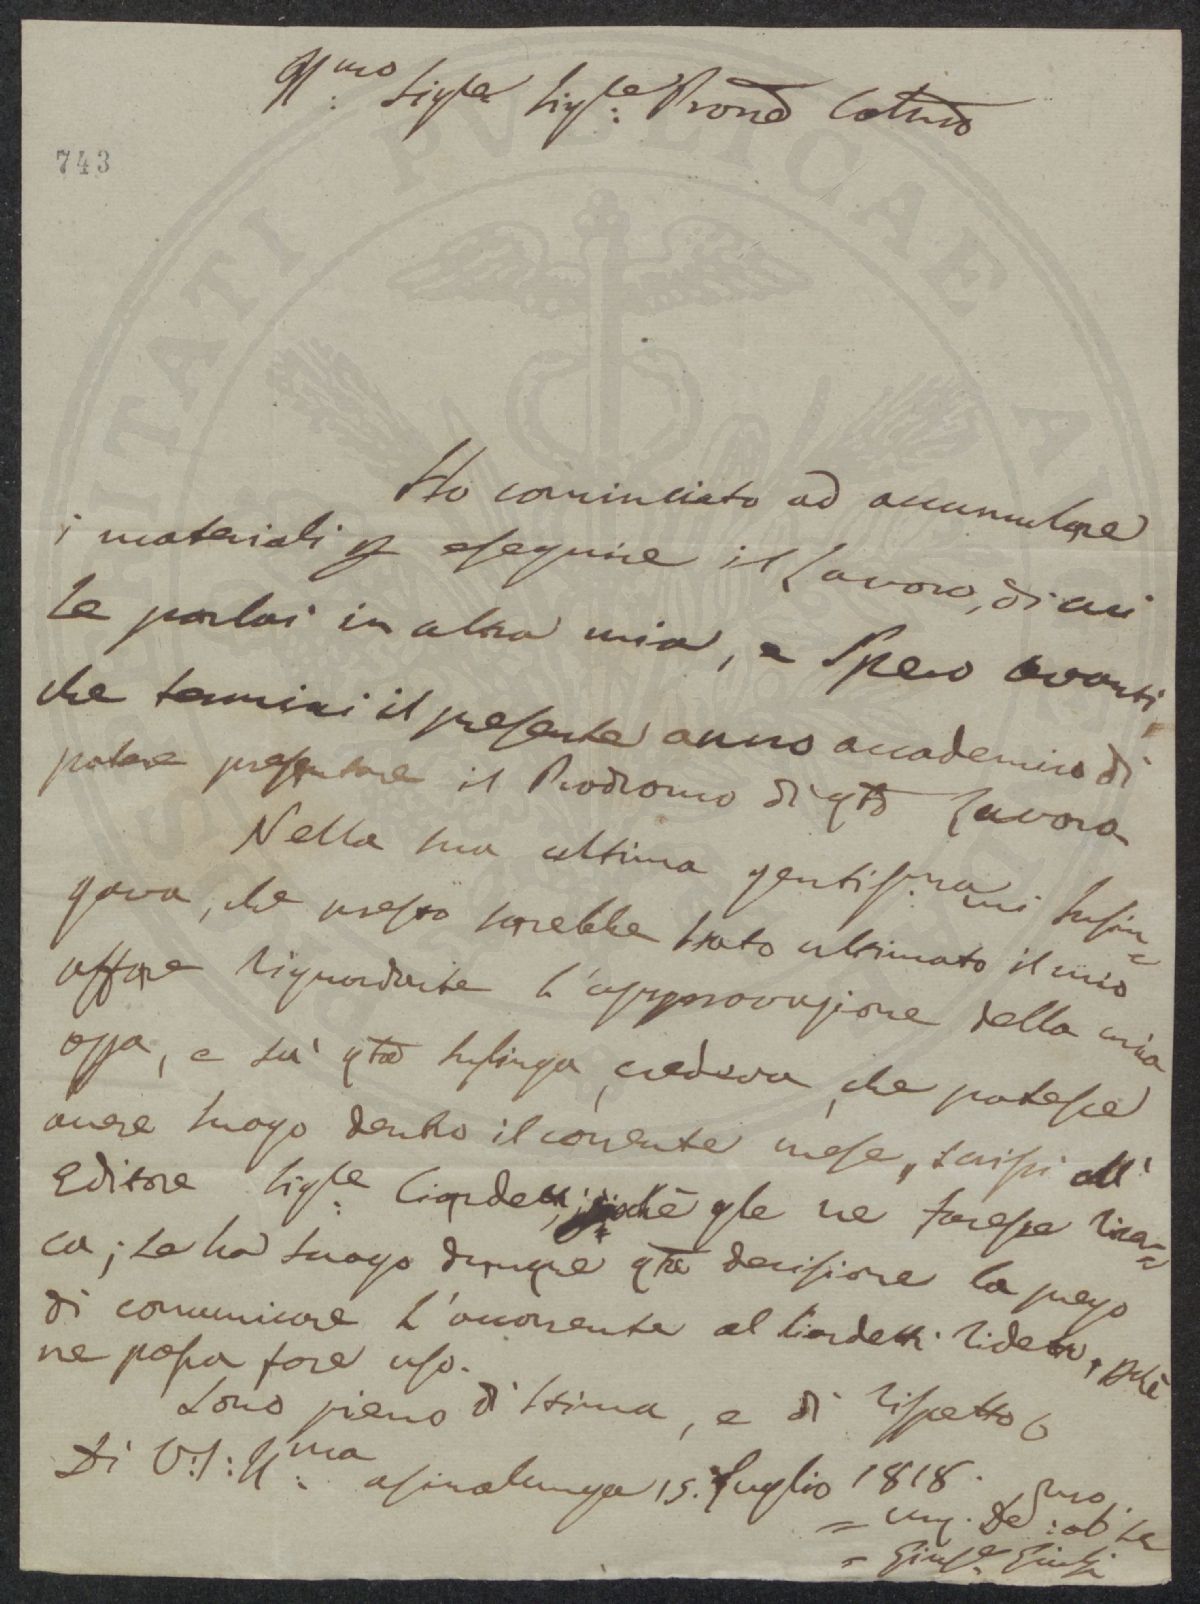 Ill:mo Sig:re Sig:re Prone Colmo
743
Ho cominciato ad accumulare
i materiali p eseguire il lavoro, di cui
Le parlai in altra mia, e spero avanti,
che termini il presente anno accademico di
potere presentare il Prodromo di qto lavoro
Nella sua ultima gentis:ma mi lusin=
gava, che presto sarebbe stato ultimato il mio
affare riguardante l'approvazione della mia
opa, e su' qta lusinga credeva, che potesse
avere luogo dentro il corrente mese, scrissi all'
Editore Sig:re Ciardetti, gle ne facesse rica=
ca; se ha luogo dunque qta decisione la prego
di comunicare l'occorrente al Ciardetti ridetto, pchè
ne possa fare uso.
Sono pieno di stima, e di rispetto
Di V:S:Ill:ma asinalunga 15. Luglio 1818.
= um. De:mo obb Se
= Giusepe Giulj
PUBLICAE